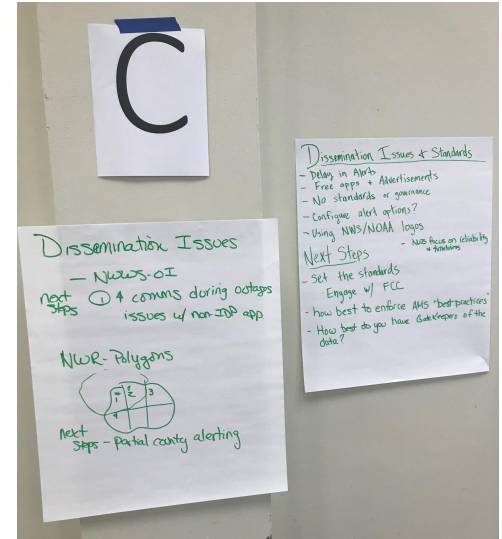 C
Dissemination Issues
- NWWS-OI
next steps ① 4 comms during outages
issues w/ non-IDP app
NWR - Polygons
1 2 3
4
next steps - partial county alerting
Dissemination Issues & Standards
- Delay in Alerts
- Free apps + Advertisements
- No standards or governance
- Configure alert options?
- Using NWS/NOAA logos
- NWS focus on reliability
+ timeliness
Next Steps
- set the standards
· Engage w/ FCC
- how best to enforce AMS "best practices"
- How best do you have Gatekeepers of the
data?